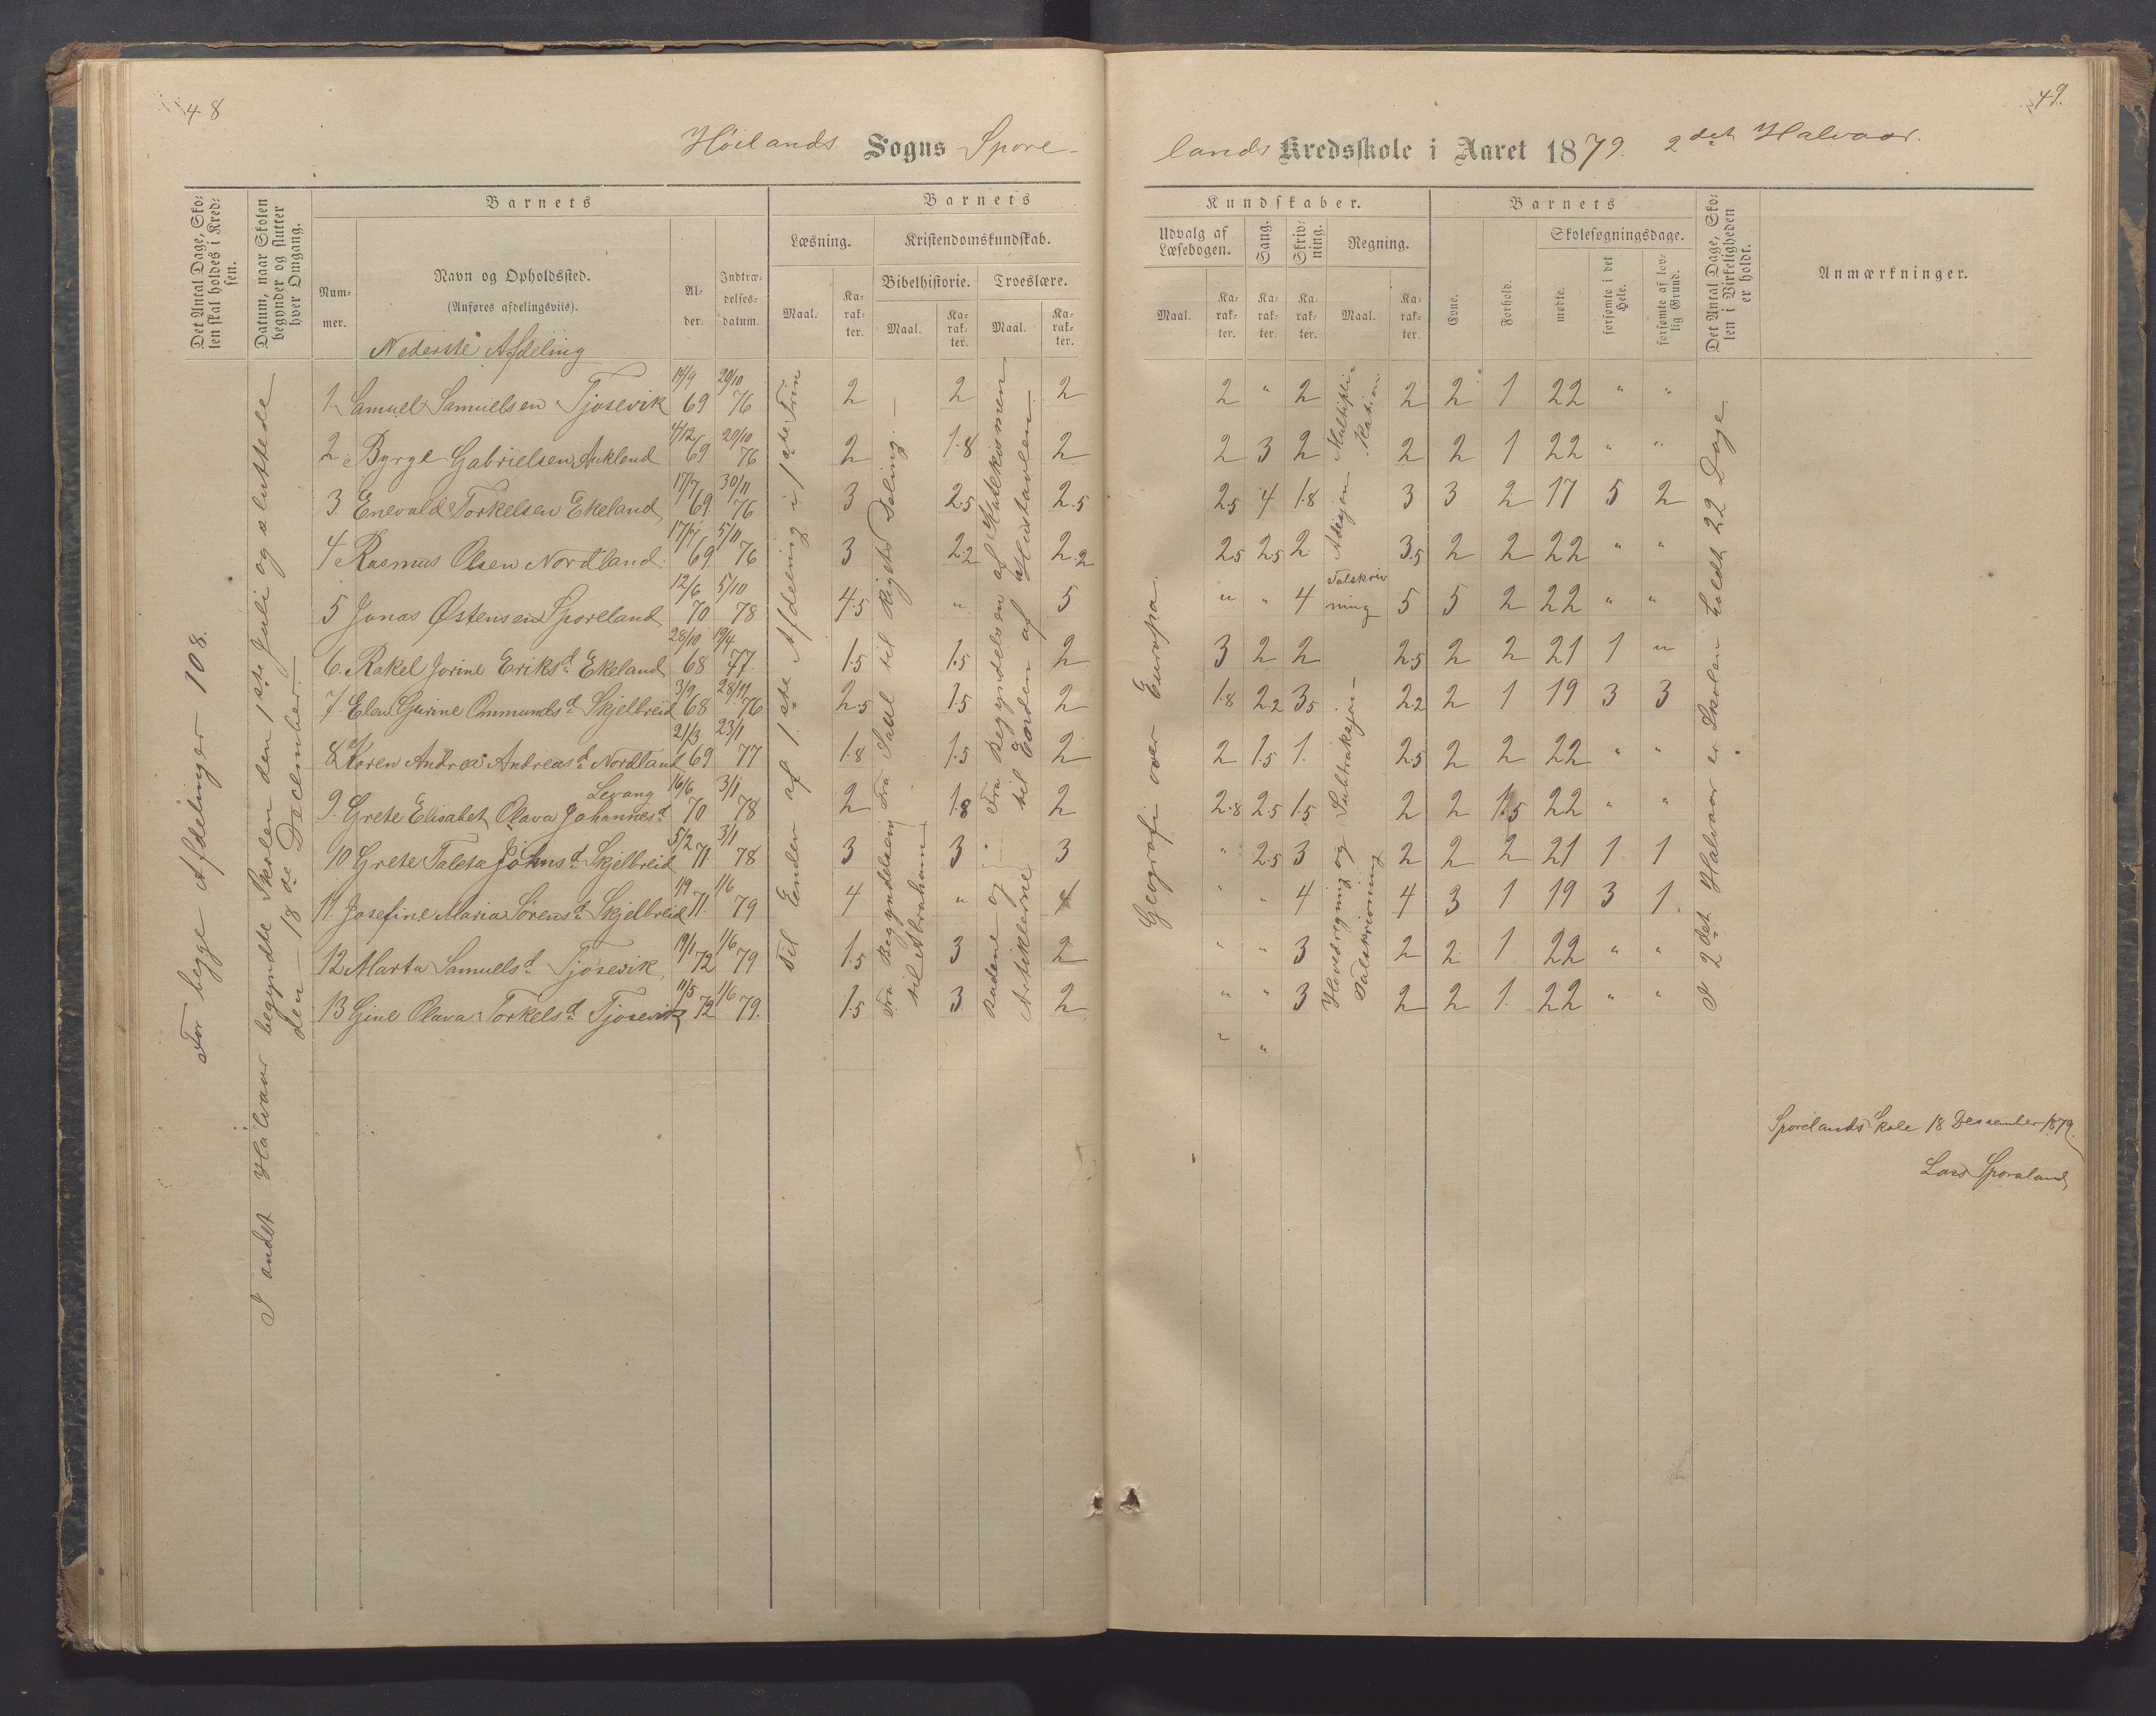 48
49.
Høilands Sogns Spore-
lands Kredsskole i Aaret 1879. 2det Halvaar.
Det Antal Dage, Sko-
len skal holdes i Kred-
sen.
Datum, naar Skolen
begynder og slutter
hver Omgang.
Barnets
Num-
mer.
Navn og Opholdssted.
(Anføres afdelingsviis).
Al-
der.
Indtræ-
delses-
datum.
Barnets
Læsning.
Maal.
Ka-
rak-
ter.
Kristendomskundskab.
Bibelhistorie.
Maal.
Ka-
rak-
ter.
Troeslære.
Maal.
Ka-
rak-
ter.
Kundskaber.
Udvalg af
Læsebogen.
Maal.
Ka-
rak-
ter.
Sang.
Ka-
rak-
ter.
Skriv-
ning.
Ka-
rak-
ter.
Regning.
Maal.
Ka-
rak-
ter.
Barnets
Evne.
Forhold.
Skolesøgningsdage.
mødte.
forsømte i det
Hele.
forsømte af lov-
lig Grund.
Det Antal Dage, Sko-
len i Virkeligheden
er holdt.
Anmærkninger.
Nederste Afdeling
For begge Afdelinger 108.
I andet Halvaar begyndte Skolen den 1ste Juli og sluttede
den 18de December.
Til Enden af 1ste Afdeling i 1ste Trin
Fra Saul til Rigets Deling.
Fra Begyndelsen
til Abraham
Fra Begyndelsen af Katekismen
til Enden af Hustavlen
Budene og
Artiklerne
Geografi over Europa.
Multipli-
kation
Adisjon
Talskriv
ning
Hovedregning og Subtraksjon
Talskrivning
I 2det Halvaar er Skolen holdt 22 Dage.
1. Samuel Samuelsen Tjosevik 14/9 69 20/10 76 2 2 2 2 " 2 2 2 1 22 " "
2. Byrge Gabrielsen Aukland 4/12 69 20/10 76 2 1.8 2 2 3 2 2 2 1 22 " "
3. Enevald Torkelsen Ekeland 17/7 69 30/11 76 3 2.5 2.5 2.5 4 1.8 3 3 2 17 5 2
4 Rasmus Olsen Nordland 17/7 69 5/11 76 3 2.2 2.2 2.5 2.5 2 3.5 2 2 22 " "
5 Jonas Østensen Sporeland 12/6 70 5/10 78 4.5 " 5 " " 4 5 5 2 22 " "
6. Rakel Jorine Eriksd. Ekeland 28/10 68 19/4 77. 1.5 1.5 2 3 2 2 2.5 2 2 21 1 "
7. Elen Gurine Ommundsd. Skjelbreid 3/9 68 28/11 76 2.5 1.5 2 1.8 2.2 3.5 2.2 2 1 19 3 3
8. Koren Andrea Andreasd. Nordland 21/3 69 23/1 77 1.8 1.5 2 2 1.5 1. 2.5 2 2 22 " "
Levang
9. Grete Elisabet Olava Johannesd. 16/6 70 3/1 78 2 1.8 2 2.8 2.5 1.5 2 2 1.5 22 " "
10 Grete Taleta Johnsd. Skjelbreid 5/2 71 3/1 78 3 3 3 " 2.5 3 2 2 2 21 1 1
11. Josefine Maria Sørensd. Skjelbreid 1/9 71. 1/6 79 4 " 4 " " 4 4 3 1 19 3 1.
12 Marta Samuelsd. Tjosevik 19/1 72 1/6 79 1.5 3 2 " " 3 2 2 1 22 " "
13 Gine Olava Torkelsd. Tjosevik 11/5 72 1/6 79. 1.5 3 2 " " 3 2 2 1. 22 " "
" "
Sporelands Skole 18 Dessember 1879.
Lars Sporaland